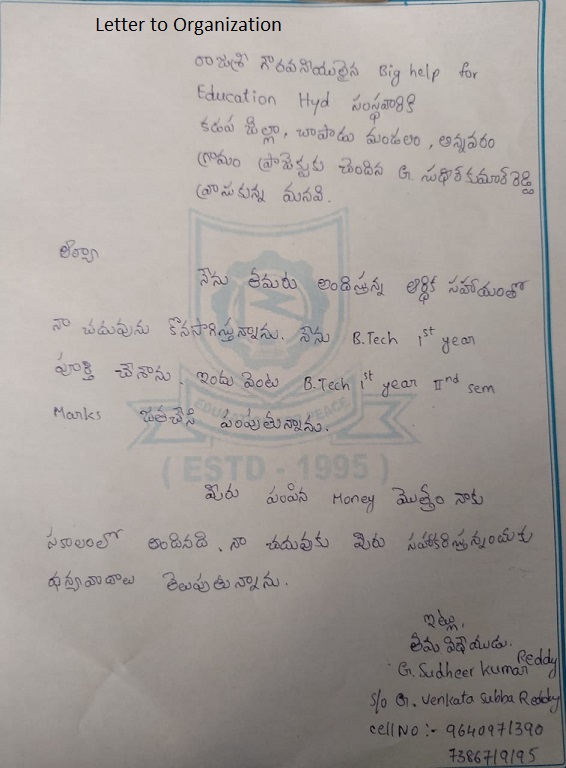 Letter to Organization
రాజశ్రీ గౌరవనీయులైన Big help for
Education Hyd సంస్థవారికి
కడప జిల్లా, చాపాడు మండలం, అన్నవరం
గ్రామం ప్రాజెక్టుకు చెందిన G. సుధీర్ కుమార్ రెడ్డి
వ్రాసుకున్న మనవి.
ఆర్యా
నేను తమరు అందిస్తున్న ఆర్థిక సహాయంతో
నా చదువును కొనసాగిస్తున్నాను. నేను B.Tech 1st year
పూర్తి చేశాను. ఇందు వెంట B.Tech 1st year IInd sem
Marks జతచేసి పంపుతున్నాను.
EDUCATION FOR PEACE
( ESTD - 1995 )
మీరు పంపిన Money మొత్తం నాకు
సకాలంలో అందినది. నా చదువుకు మీరు సహకరిస్తున్నందుకు
ధన్యవాదాలు తెలుపుతున్నాను.
ఇట్లు,
తమ విధేయుడు.
G. Sudheer Kumar Reddy
S/o G. Venkata Subba Reddy
cell No :- 9640971390
7386719195